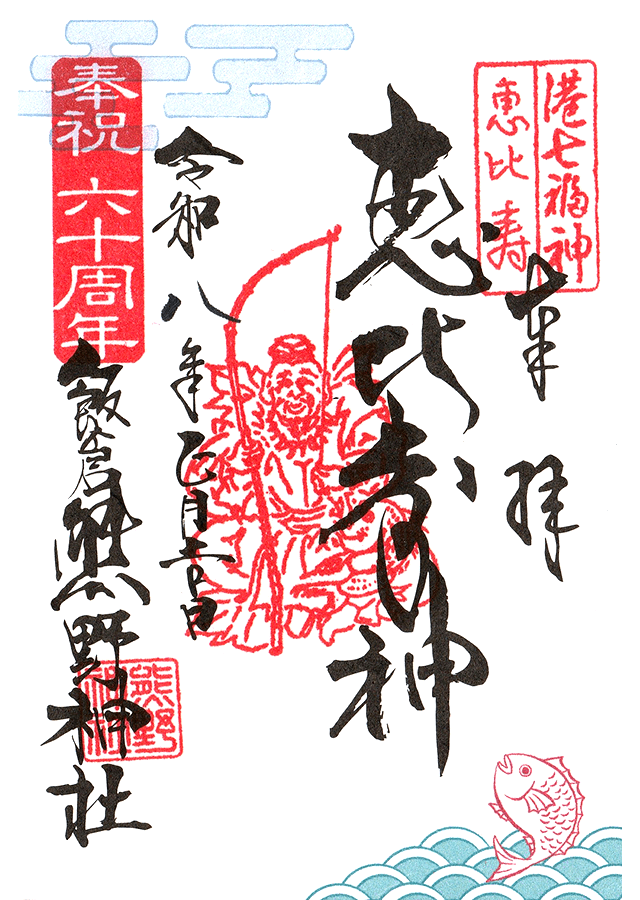 港七福神
恵比寿
奉拝
恵比寿神
令和八年正月日
奉祝 六十周年
飯倉熊野神社
熊野神社